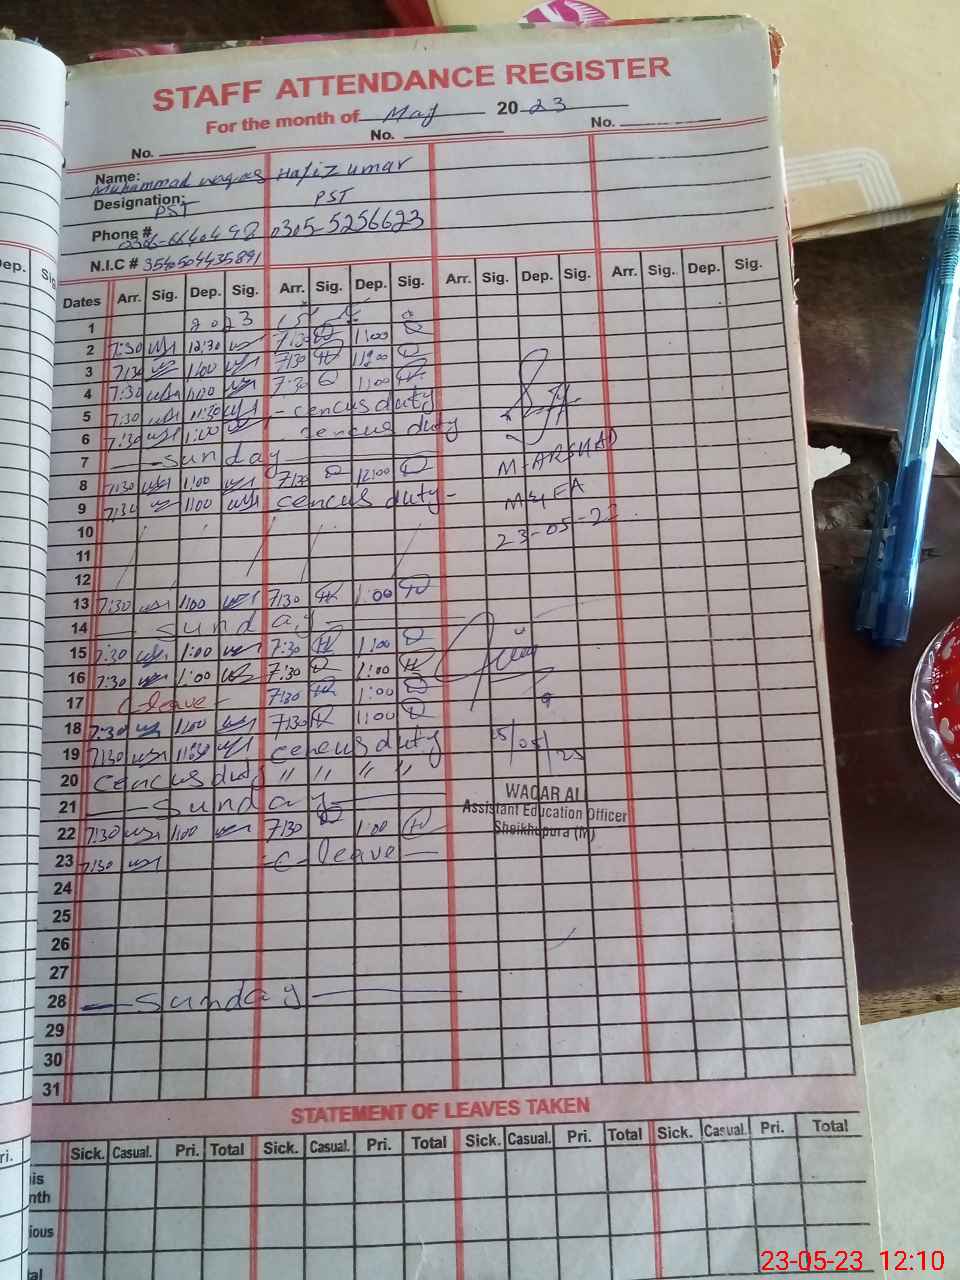 STAFF ATTENDANCE REGISTER
For the month of May 2023
No. No. No.
Name: Muhammad waqas Hafiz umar
Designation: PST PST
Phone # 0305-5256623
N.I.C #
Dep. Sig.
Dates Arr. Sig. Dep. Sig. Arr. Sig. Dep. Sig. Arr. Sig. Dep. Sig. Arr. Sig. Dep. Sig.
1 2023
2 7:30 12:30 7:30 1:00
3 7:30 1:00 7:30
4 7:30 1:00 7:30 1:00
5 7:30 11:30 - cencus duty
6 7:30 1:00 cencus duty
7 Sunday
8 7:30 1:00 7:30 12:00
9 7:30 1:00 cencus duty -
M. ARSHAD
MEA
23-05-23
10
11
12
13 7:30 1:00 7:30 1:00
14 Sunday
15 7:30 1:00 7:30 1:00
16 7:30 1:00 7:30 1:00
17 C leave - 7:30 1:00
18 7:30 1:00 7:30 1:00
19 7:30 11:30 cencus duty
20 cencus duty " " " "
21 Sunday
22 7:30 1:00 7:30 1:00
23 7:30 - C - leave -
WAQAR ALI
Assistant Education Officer
Sheikhupura (M)
24
25
26
27
28 Sunday
29
30
31
STATEMENT OF LEAVES TAKEN
Sick. Casual. Pri. Total Sick. Casual. Pri. Total Sick. Casual. Pri. Total Sick. Casual. Pri. Total
23-05-23 12:10